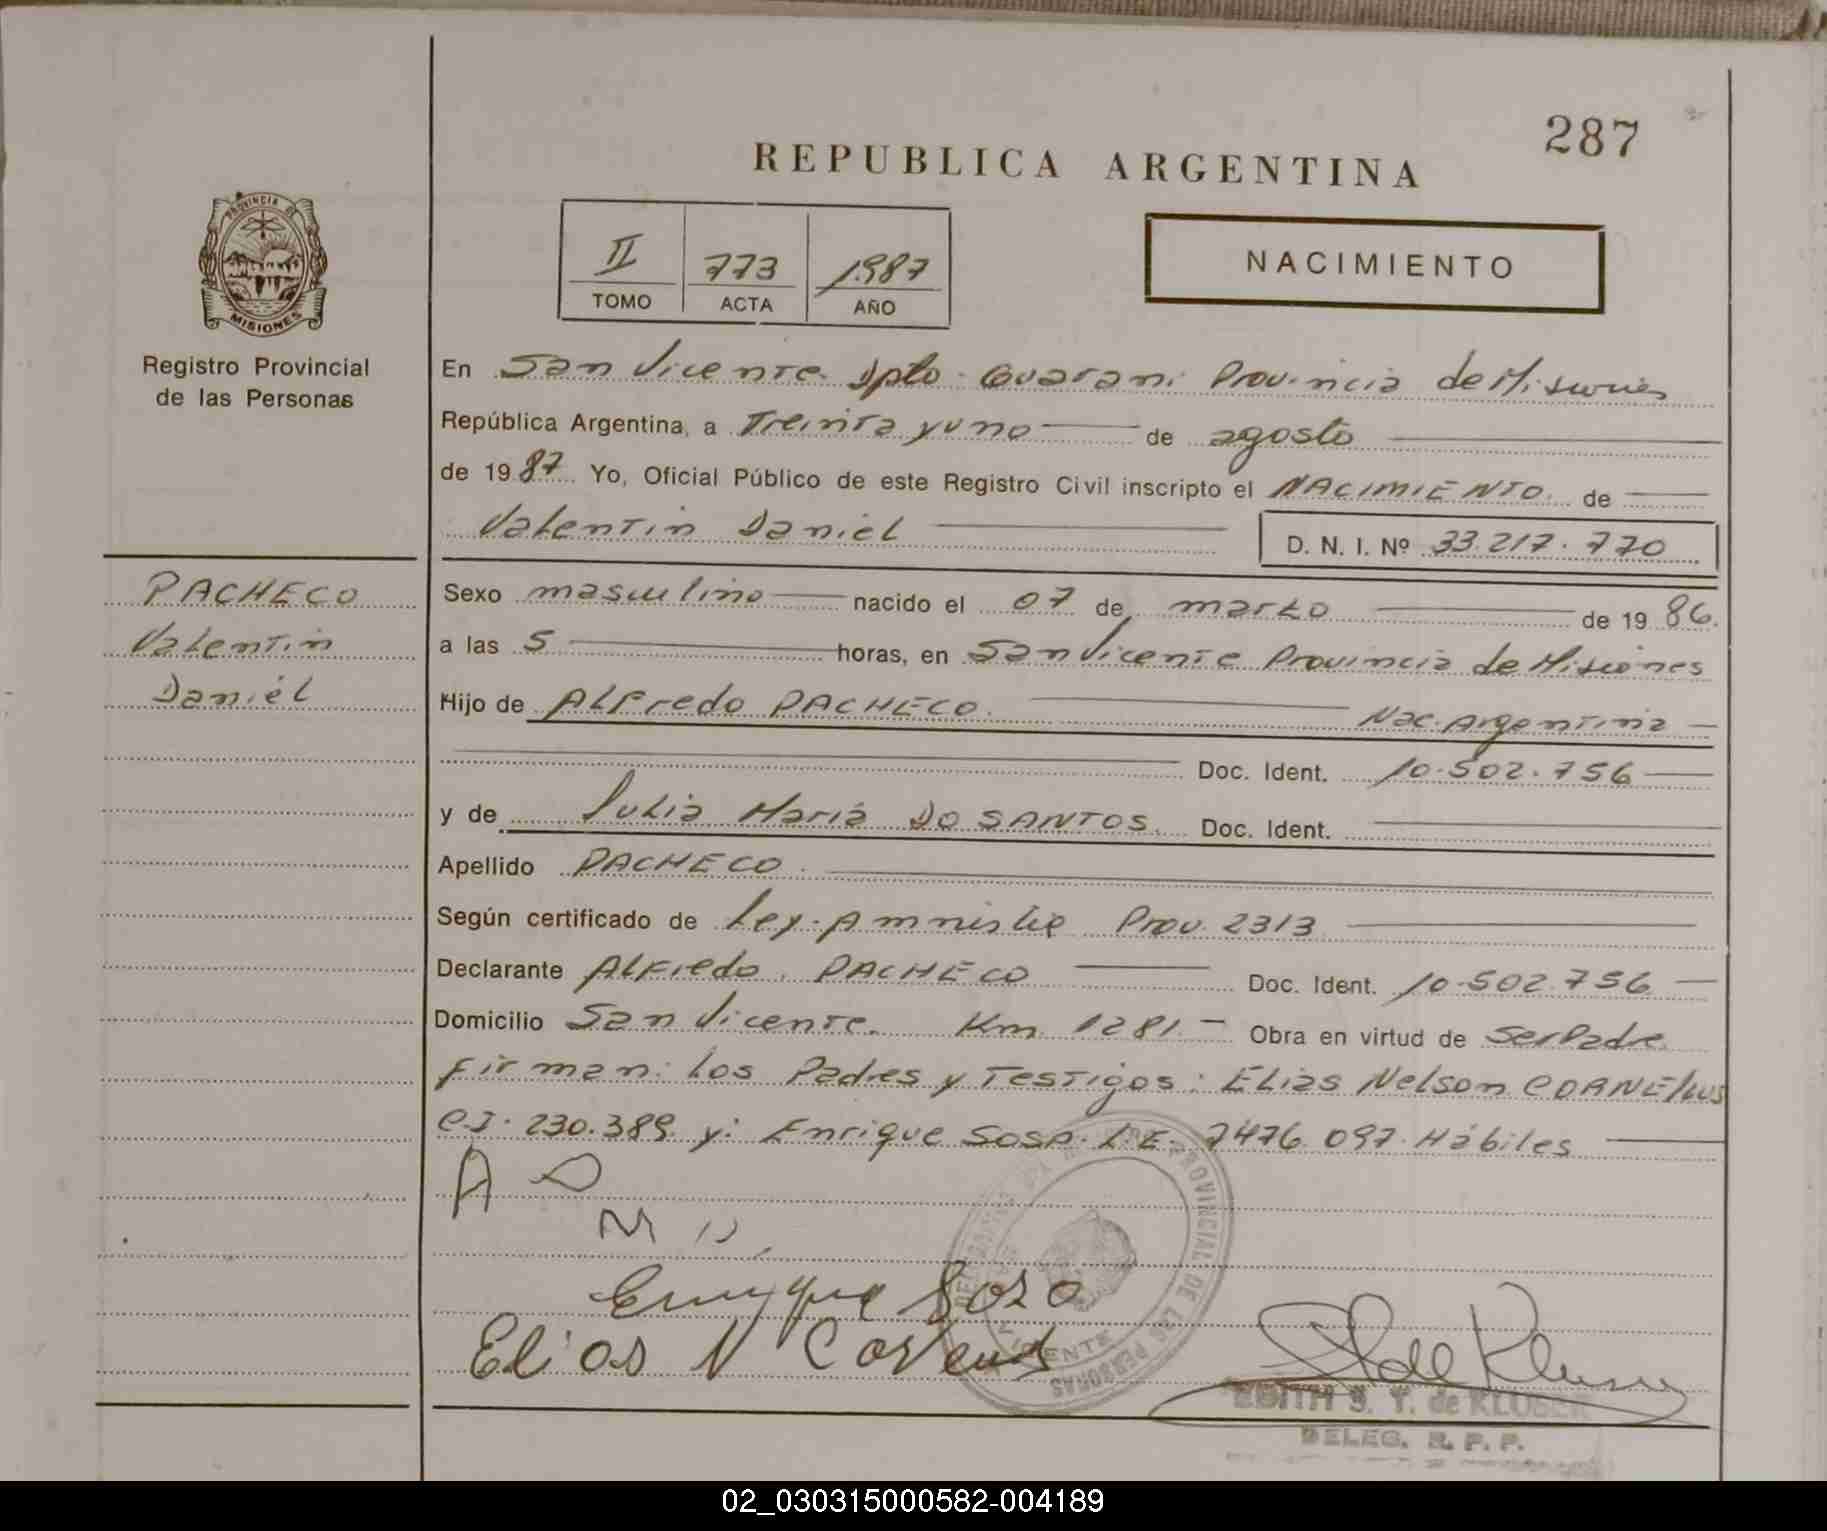 287
REPUBLICA ARGENTINA
PROVINCIA DE
MISIONES
Registro Provincial
de las Personas
II 773 1987
TOMO ACTA AÑO
NACIMIENTO
En San Vicente Dpto Guarani Provincia de Misiones
República Argentina, a Treinta y uno de agosto
de 1987. Yo, Oficial Público de este Registro Civil inscripto el NACIMIENTO de
Valentin Daniel D. N. I. Nº 33.217.770
PACHECO
Valentin
Daniel
Sexo masculino nacido el 07 de marzo de 1986.
a las 5 horas, en San Vicente Provincia de Misiones
Hijo de Alfredo PACHECO. Nac. Argentina
Doc. Ident. 10.502.756
y de Julia Maria DO SANTOS. Doc. Ident.
Apellido PACHECO.
Según certificado de Ley. Amnistie Prov. 2313
Declarante Alfredo. PACHECO Doc. Ident. 10.502.756
Domicilio San Vicente. Km. 1281.- Obra en virtud de ser Padre
firman: los Padres y Testigos: Elias Nelson
C.I. 230.389 y: Enrique SOSA. L.E. 7476.097. Hábiles
A D
M D,
Enrique Soza
Elias N
PROVINCIAL DE LAS PERSONAS
VICENTE
EDITH S. T. de KLUSER
DELEG. R. P. P.
02_030315000582-004189